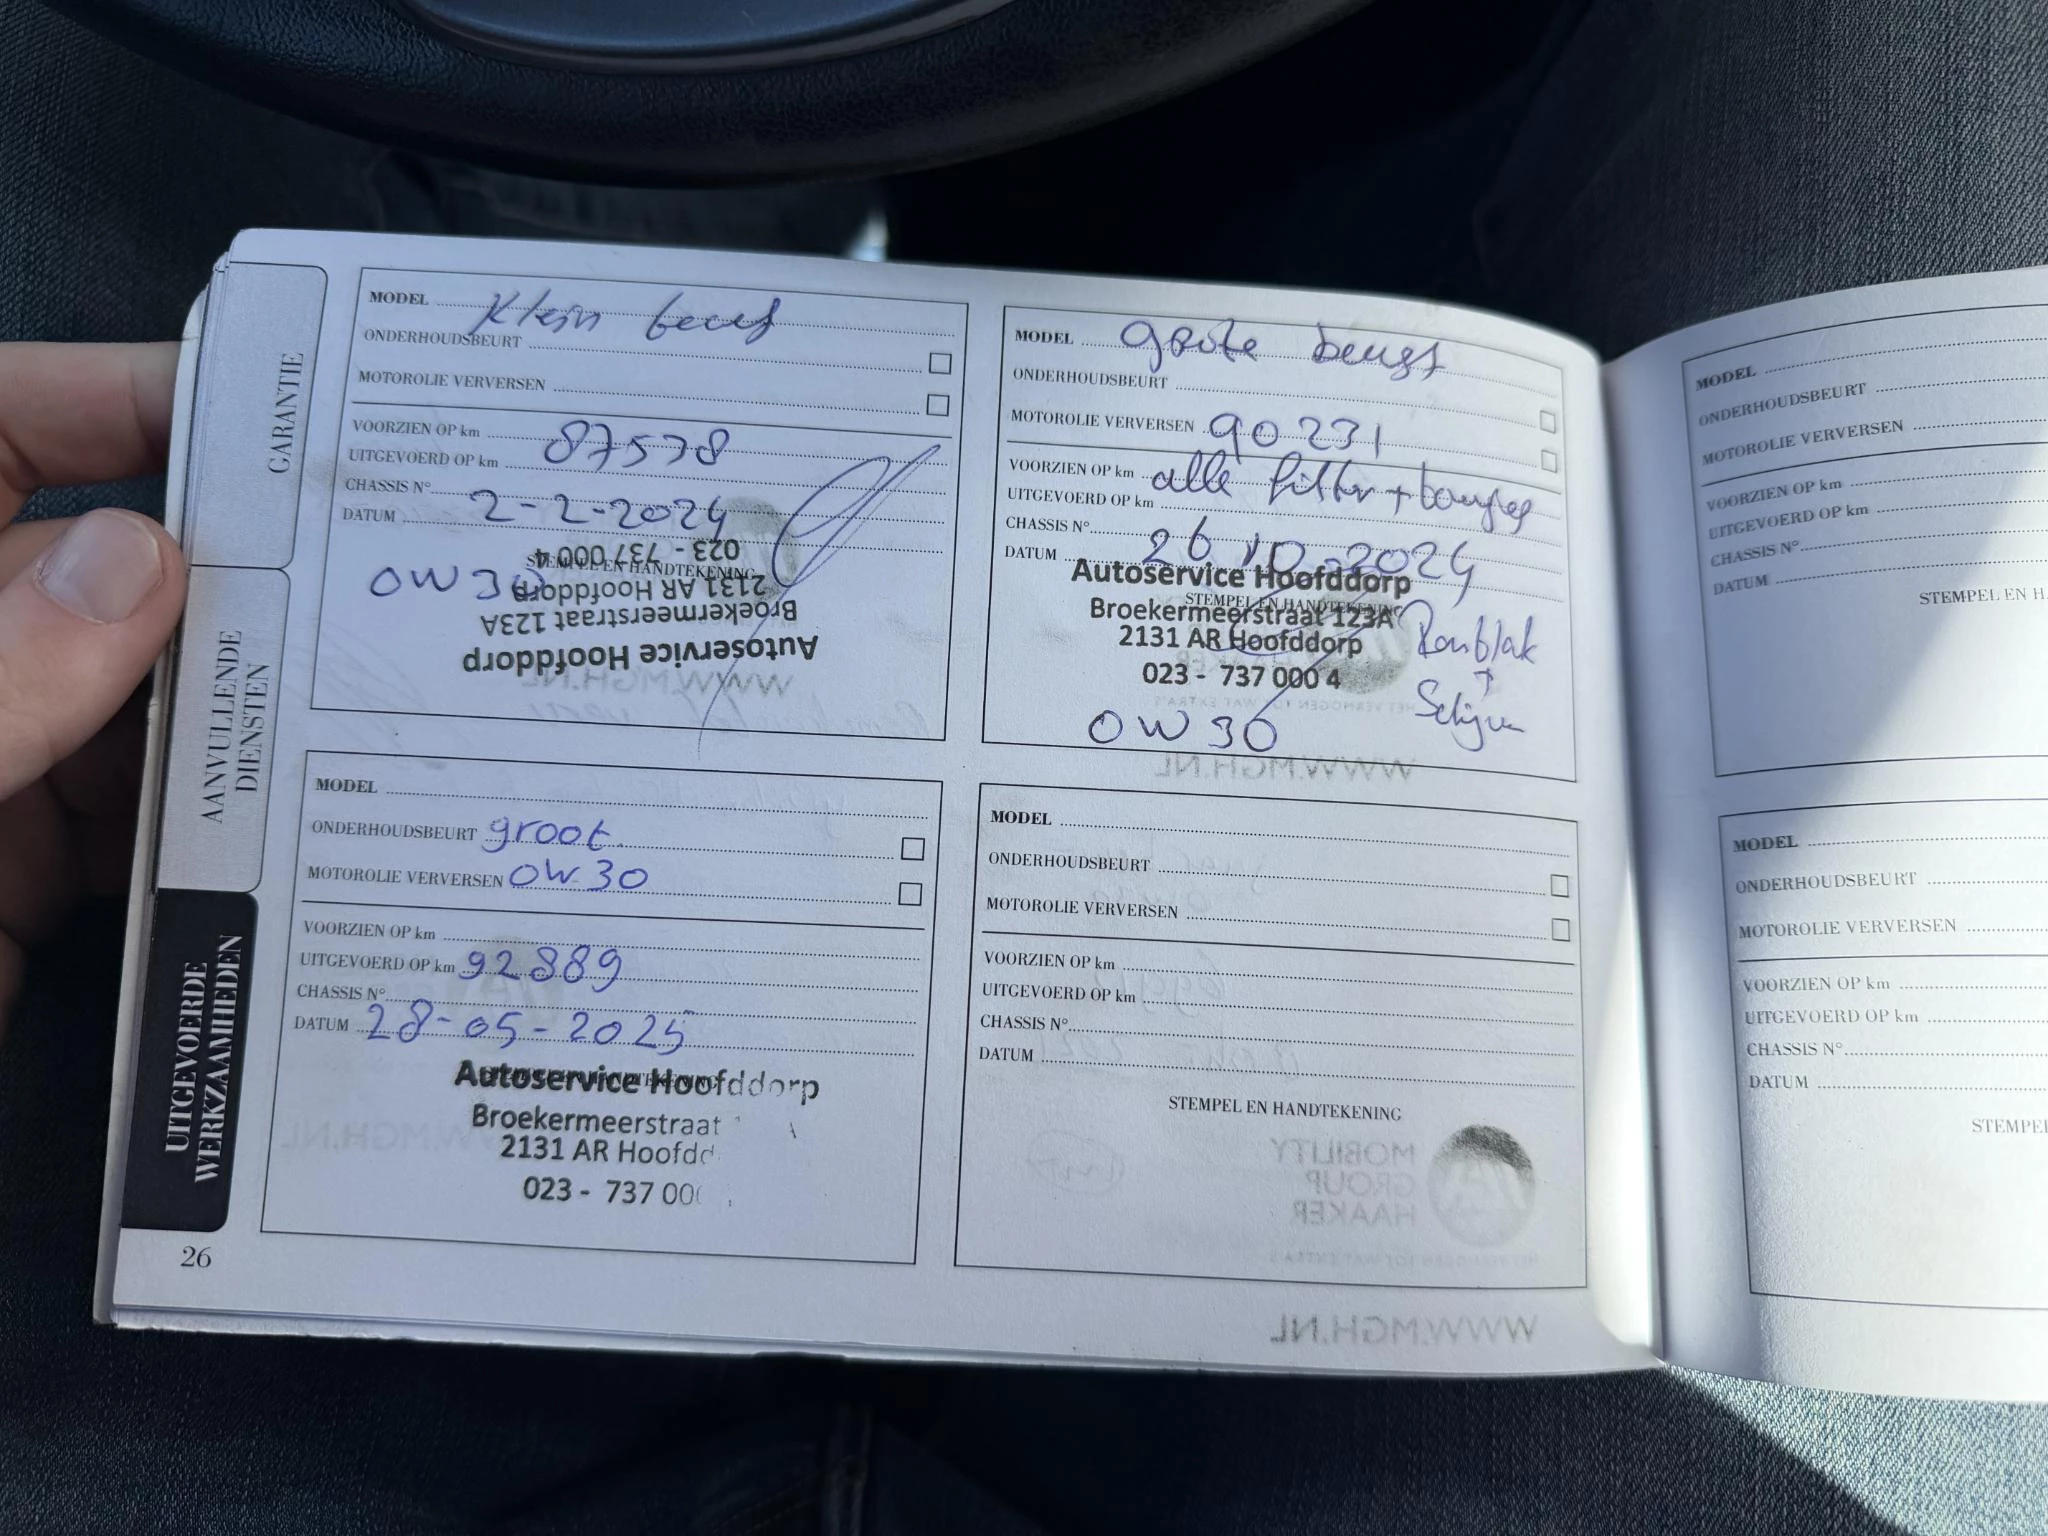 GARANTIE
AANVULLENDE
DIENSTEN
UITGEVOERDE
WERKZAAMHEDEN
MODEL Klein beurt
ONDERHOUDSBEURT
MOTOROLIE VERVERSEN
VOORZIEN OP km 87578
UITGEVOERD OP km
CHASSIS N° 2-2-2024
DATUM
STEMPEL EN HANDTEKENING
OW30
Autoservice Hoofddorp
Broekermeerstraat 123A
2131 AR Hoofddorp
023 - 737 000 4
WWW.MGH.NL
MODEL grote beurt
ONDERHOUDSBEURT
MOTOROLIE VERVERSEN 90231
VOORZIEN OP km alle filter +
UITGEVOERD OP km
CHASSIS N° 26 10-2024
DATUM
STEMPEL EN HANDTEKENING
Autoservice Hoofddorp
Broekermeerstraat 123A
2131 AR Hoofddorp
023 - 737 000 4
Remblok
+
Schijven
OW30
WWW.MGH.NL
MODEL
ONDERHOUDSBEURT groot
MOTOROLIE VERVERSEN OW30
VOORZIEN OP km
UITGEVOERD OP km 92889
CHASSIS N°
DATUM 28-05-2025
Autoservice Hoofddorp
Broekermeerstraat
2131 AR Hoofdd
023 - 737 00
MODEL
ONDERHOUDSBEURT
MOTOROLIE VERVERSEN
VOORZIEN OP km
UITGEVOERD OP km
CHASSIS N°
DATUM
STEMPEL EN HANDTEKENING
MOBILITY
GROUP
HAAKER
WWW.MGH.NL
26
MODEL
ONDERHOUDSBEURT
MOTOROLIE VERVERSEN
VOORZIEN OP km
UITGEVOERD OP km
CHASSIS N°
DATUM
STEMPEL EN H
MODEL
ONDERHOUDSBEURT
MOTOROLIE VERVERSEN
VOORZIEN OP km
UITGEVOERD OP km
CHASSIS N°
DATUM
STEMPEL